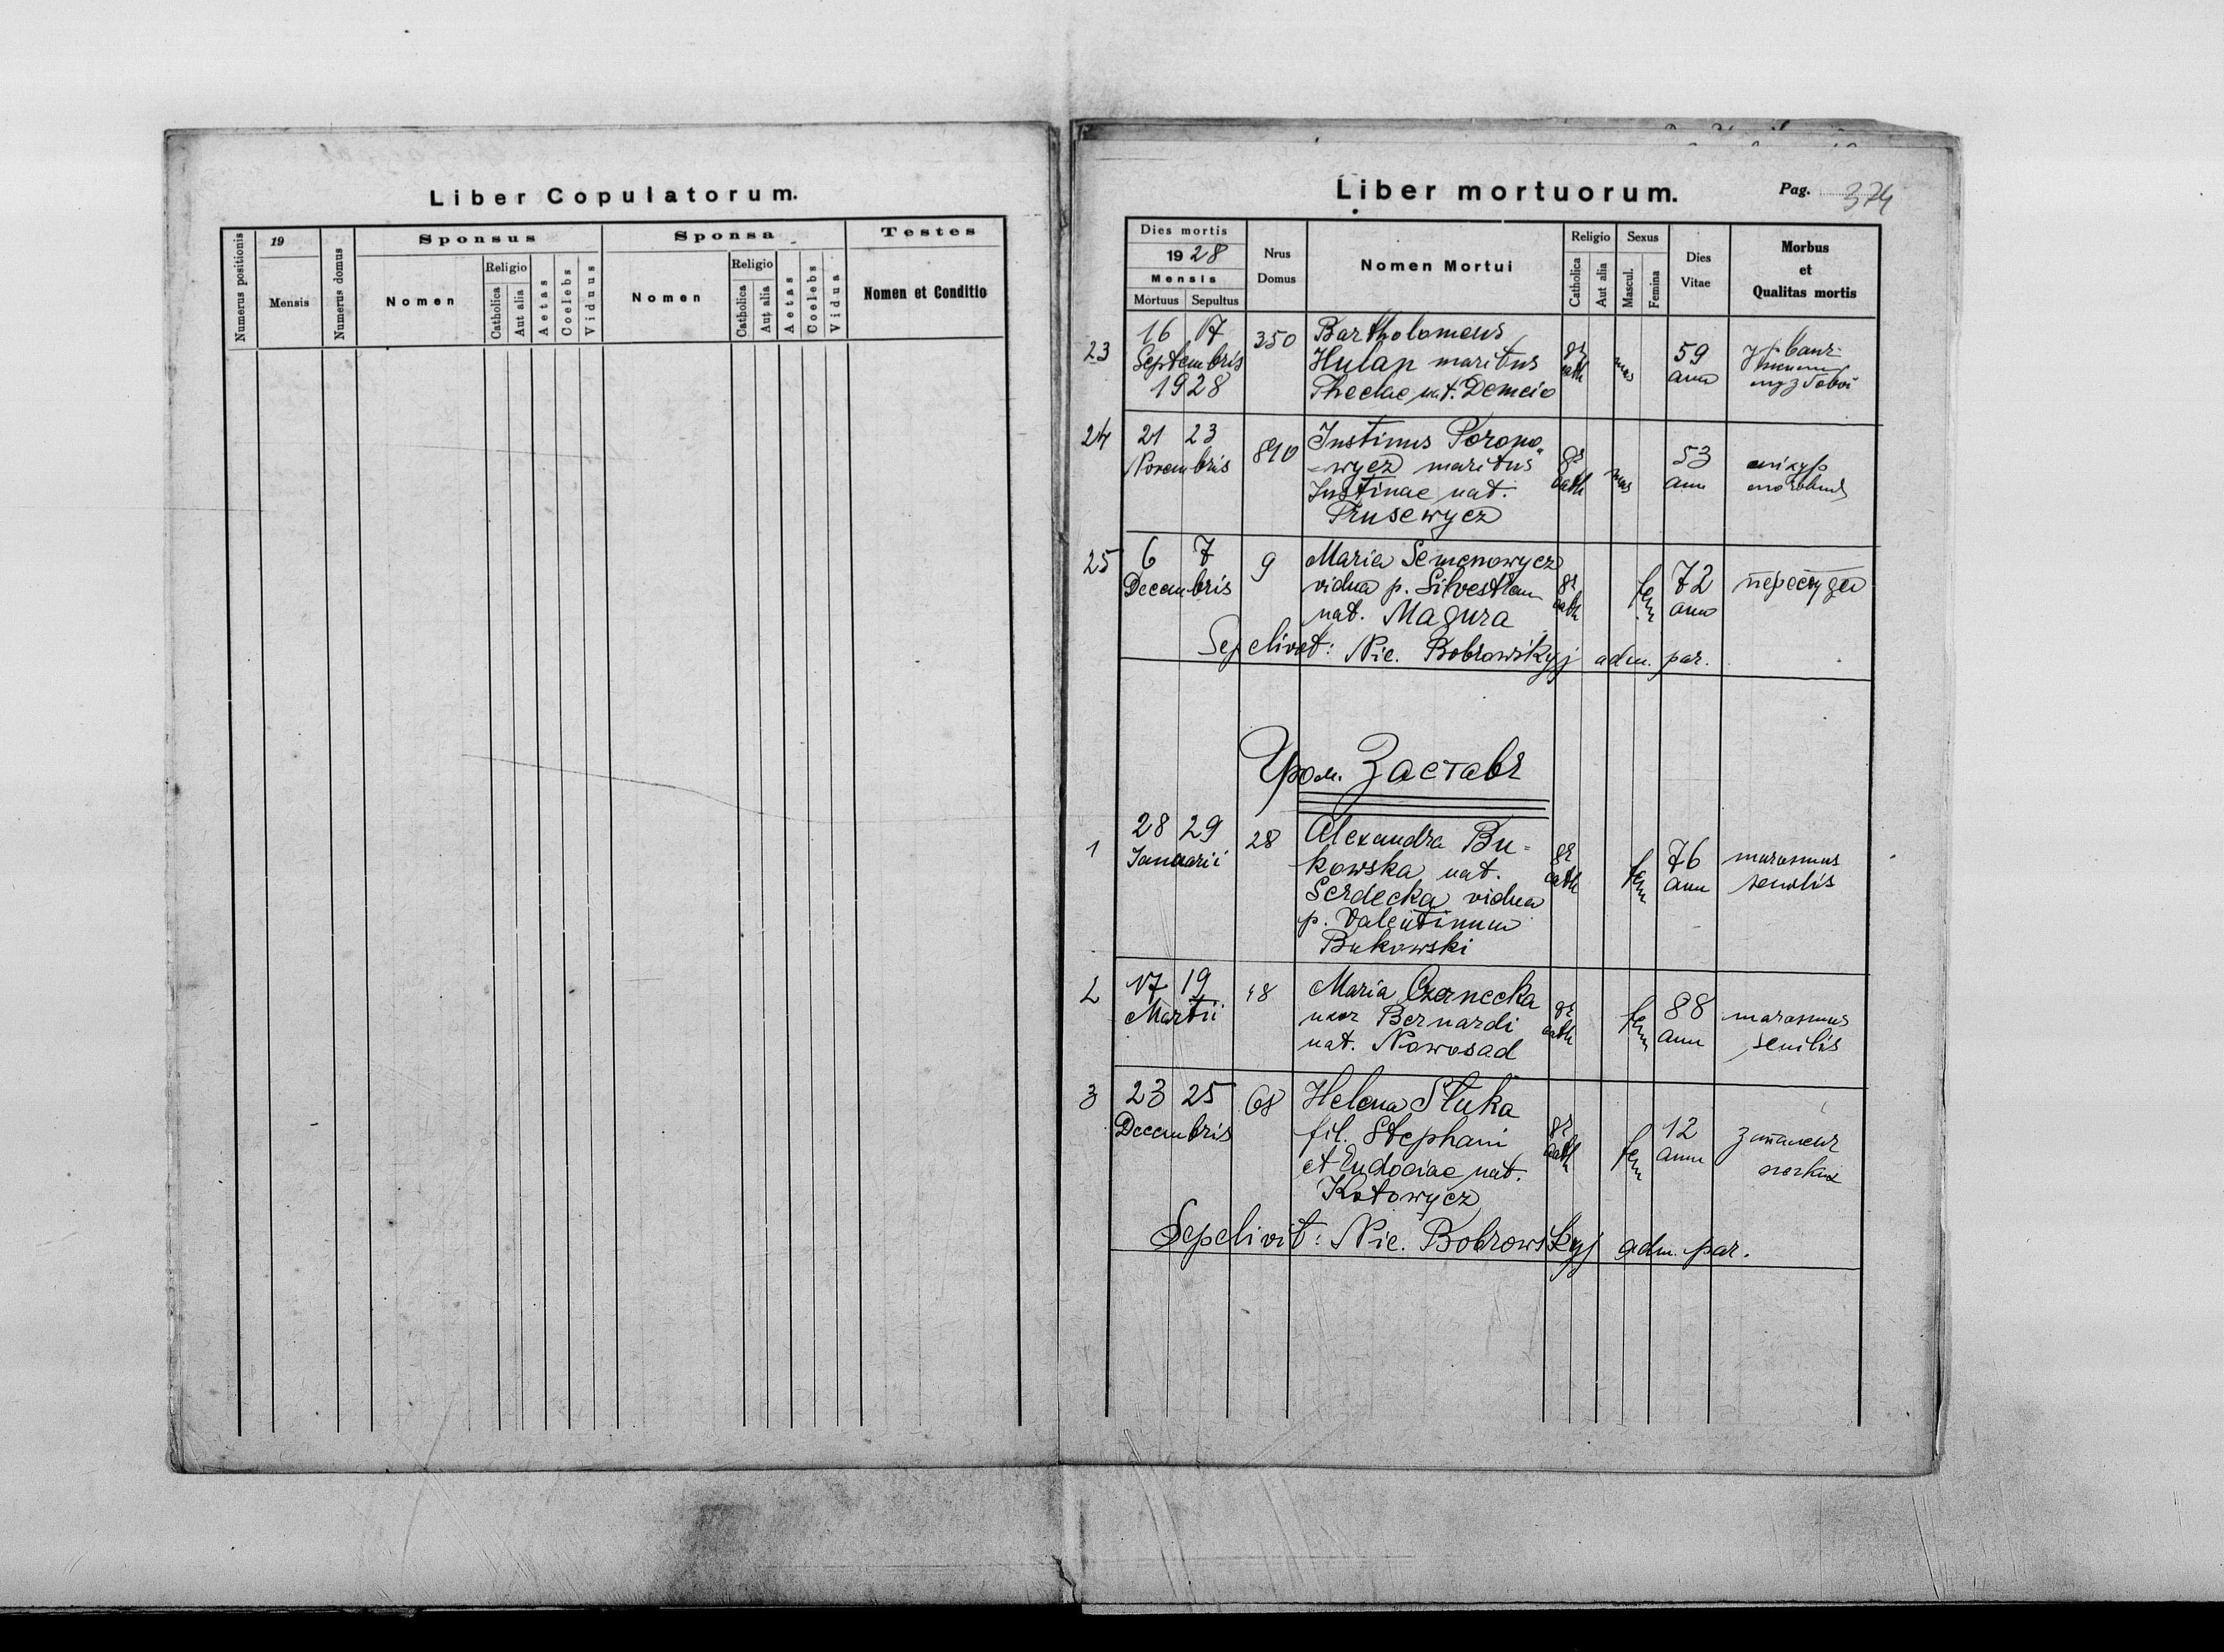 Liber Copulatorum.
Numerus positionis
19
Mensis
Numerus domus
Sponsus
Nomen
Religio
Catholica
Aut alia
Aetas
Coelebs
Viduus
Sponsa
Nomen
Religio
Catholica
Aut alia
Aetas
Coelebs
Vidua
Testes
Nomen et Conditio
Liber mortuorum.
Pag. 374
Dies mortis
1928
Mensis
Mortuus Sepultus
Nrus
Domus
Nomen Mortui
Religio
Catholica
Aut alia
Sexus
Mascul.
Femina
Dies
Vitae
Morbus
et
Qualitas mortis
23
16 17
Septembris
1928
350
Bartholomeus
Hulap maritus
Theclae nat. Demcio
gr
cath
mas
59
ann
24
21 23
Novembris
890
Justinus Poropo-
-wycz maritus
Justinae nat.
Prusewycz
gr
cath
mas
53
ann
25
6 7
Decembris
9
Maria Semenowycz
vidua p. Silvestrum
nat. Magura
gr
cath
fem
72
ann
пересуда
Sepelivit: Nic. Bobrowskyj adm. par.
Гром. Заставє
1
28 29
Januarii
28
Alexandra Bu-
kowska nat.
Serdecka vidua
p. Valentinum
Bukowski
gr
cath
fem
76
ann
marasmus
senilis
2
17 19
Martii
48
Maria Czernecka
uxor Bernardi
nat. Nowosad
gr
cath
fem
88
ann
marasmus
senilis
3
23 25
Decembris
68
Helena Sluka
fil. Stephani
et Eudociae nat.
Kotowycz
gr
cath
fem
12
ann
запаленє
Sepelivit: Nic. Bobrowskyj adm. par.